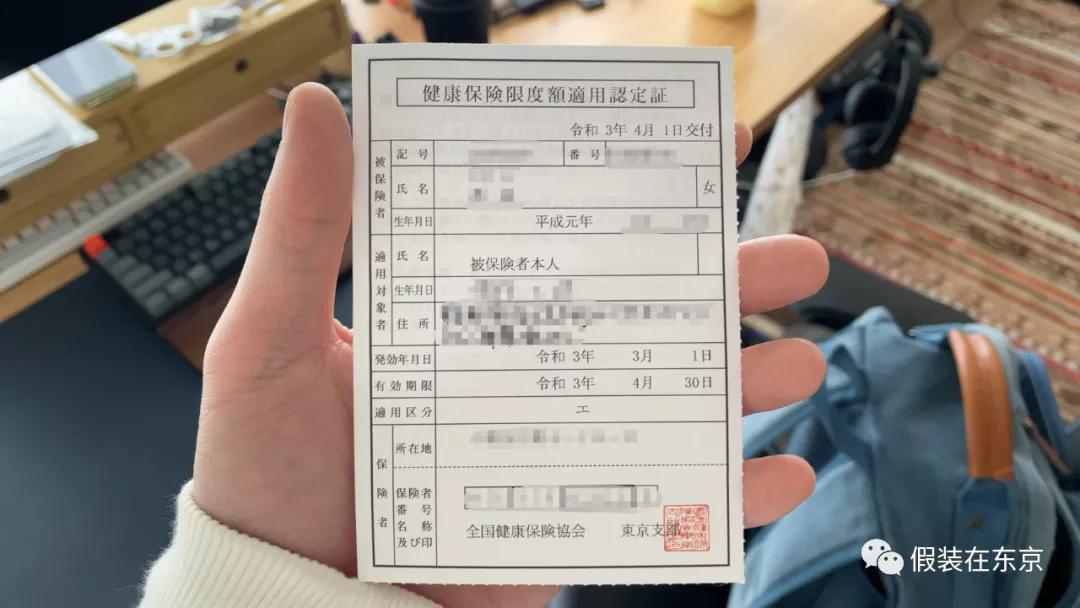 健康保険限度額適用認定証
令和 3年 4月 1日交付
被保険者
記号
番号
氏名
女
生年月日
平成元年
適用対象者
氏名
被保険者本人
生年月日
住所
発効年月日
令和 3年 3月 1日
有効期限
令和 3年 4月 30日
適用区分
エ
保険者
所在地
保険者
番号
名称
及び印
全国健康保険協会 東京支部
假装在东京